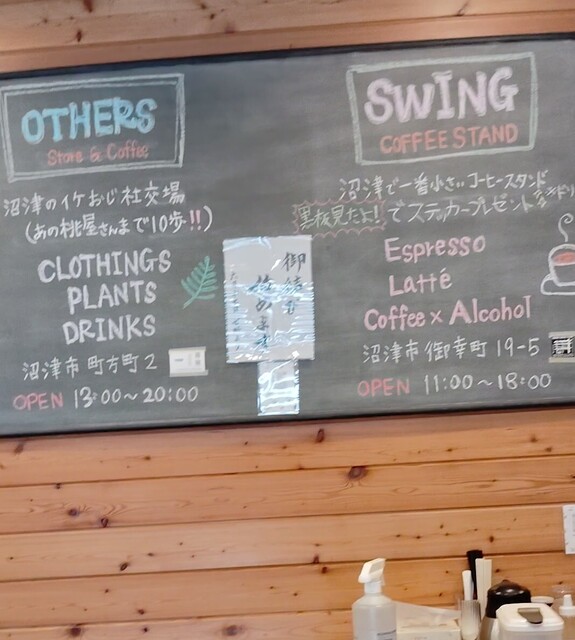 OTHERS
Store & Coffee
沼津のイケおじ社交場
(あの桃屋さんまで10歩!!)
CLOTHINGS
PLANTS
DRINKS
沼津市 町方町2
OPEN 13:00~20:00
SWING
COFFEE STAND
沼津で一番小さいコーヒースタンド
黒板見たよ! でステッカープレゼント
Espresso
Latté
Coffee × Alcohol
沼津市 御幸町 19-5
OPEN 11:00~18:00